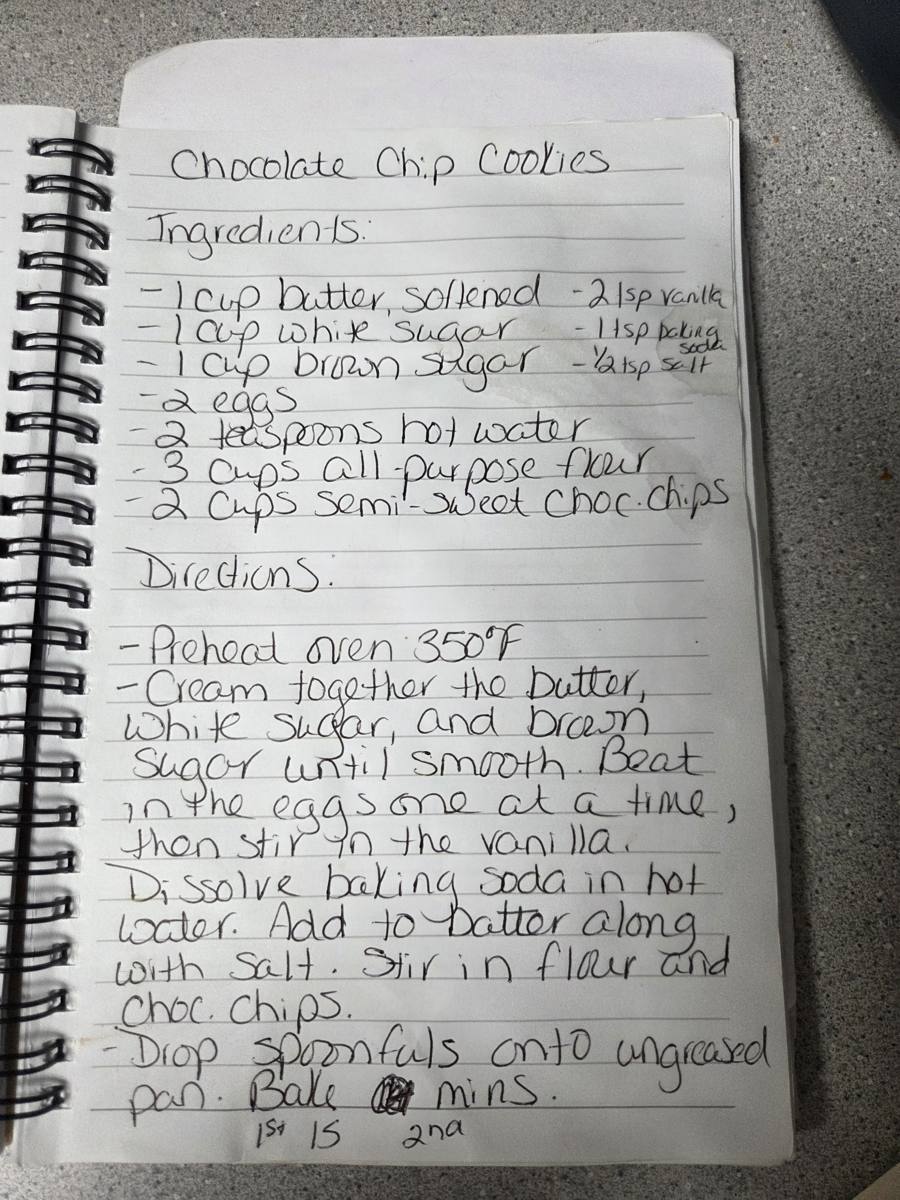 Chocolate Chip Cookies
Ingredients:
- 1 cup butter, softened
- 1 cup white sugar
- 1 cup brown sugar
- 2 eggs
- 2 teaspoons hot water
- 3 cups all-purpose flour
- 2 cups semi-sweet choc. chips
- 2 tsp vanilla
- 1 tsp baking
soda
- 1/2 tsp salt
Directions:
- Preheat oven 350°F
- Cream together the butter,
white sugar, and brown
sugar until smooth. Beat
in the eggs one at a time,
then stir in the vanilla.
Dissolve baking soda in hot
water. Add to batter along
with salt. Stir in flour and
choc. chips.
- Drop spoonfuls onto ungreased
pan. Bake mins.
1st 15 2nd